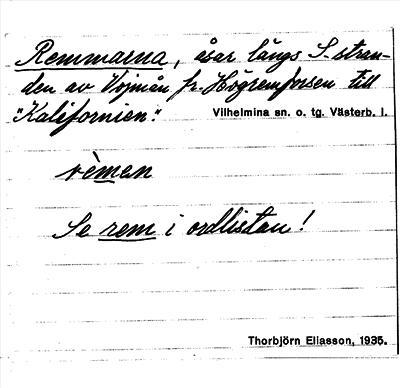 Remmarna, åsar längs S-stran-
den av Vojmån fr. Högremforsen till
"Kalifornien".
Vilhelmina sn. o. tg. Västerb. l.
rèmen
Se rem i ordlistan!
Thorbjörn Eliasson, 1935.